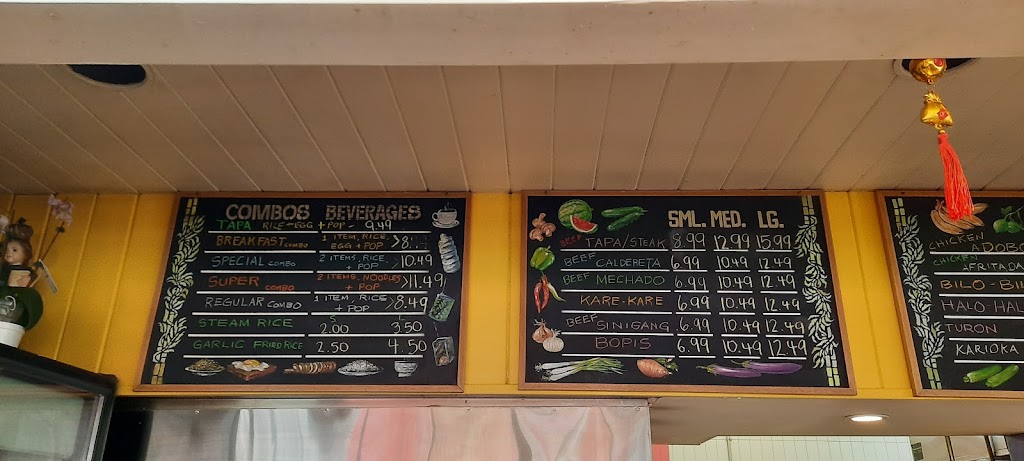 COMBOS BEVERAGES
TAPA RICE + EGG + POP - 9.49
BREAKFAST COMBO 1 ITEM, RICE, EGG + POP >8.
SPECIAL COMBO 2 ITEMS, RICE, + POP >10.49
SUPER COMBO 2 ITEMS, NOODLES + POP >11.49
REGULAR COMBO 1 ITEM, RICE + POP >8.49
S L
STEAM RICE 2.00 3.50
GARLIC FRIED RICE 2.50 4.50
SML. MED. LG.
BEEF TAPA/STEAK 8.99 12.99 15.99
BEEF CALDERETA 6.99 10.49 12.49
BEEF MECHADO 6.99 10.49 12.49
KARE-KARE 6.99 10.49 12.49
BEEF SINIGANG 6.99 10.49 12.49
BOPIS 6.99 10.49 12.49
CHICKEN ADOBO
CHICKEN AFRITADA
BILO-BIL
HALO HAL
TURON
KARIOKA